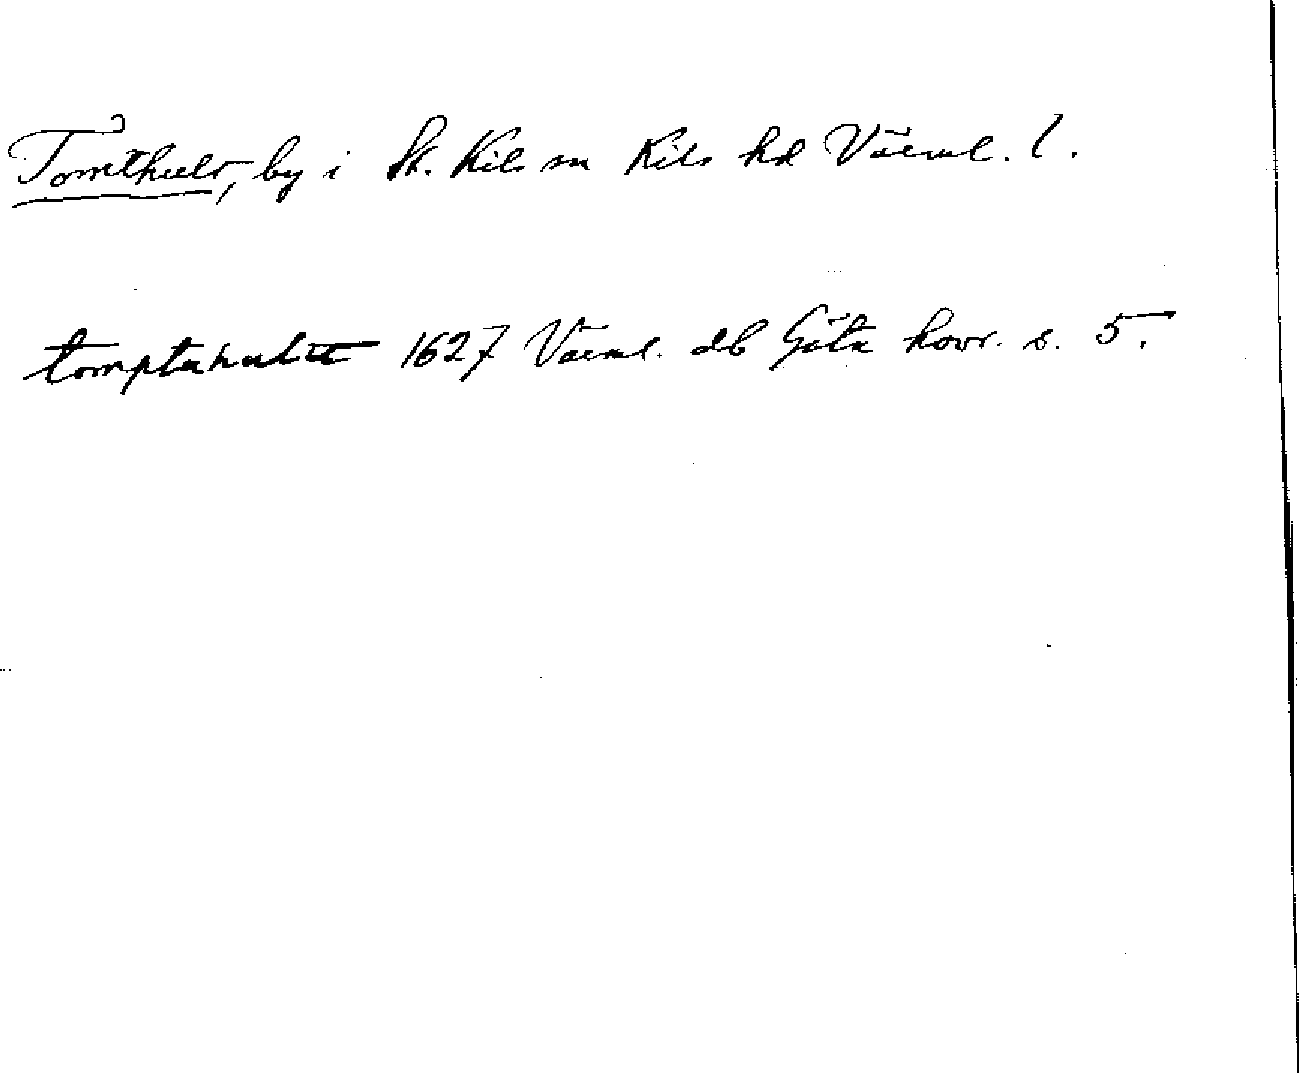 Tomthult, by i St. Kils sn Kils hd Värml. l.
tomptahult 1627 Värml. db Göta hovr. s. 5.